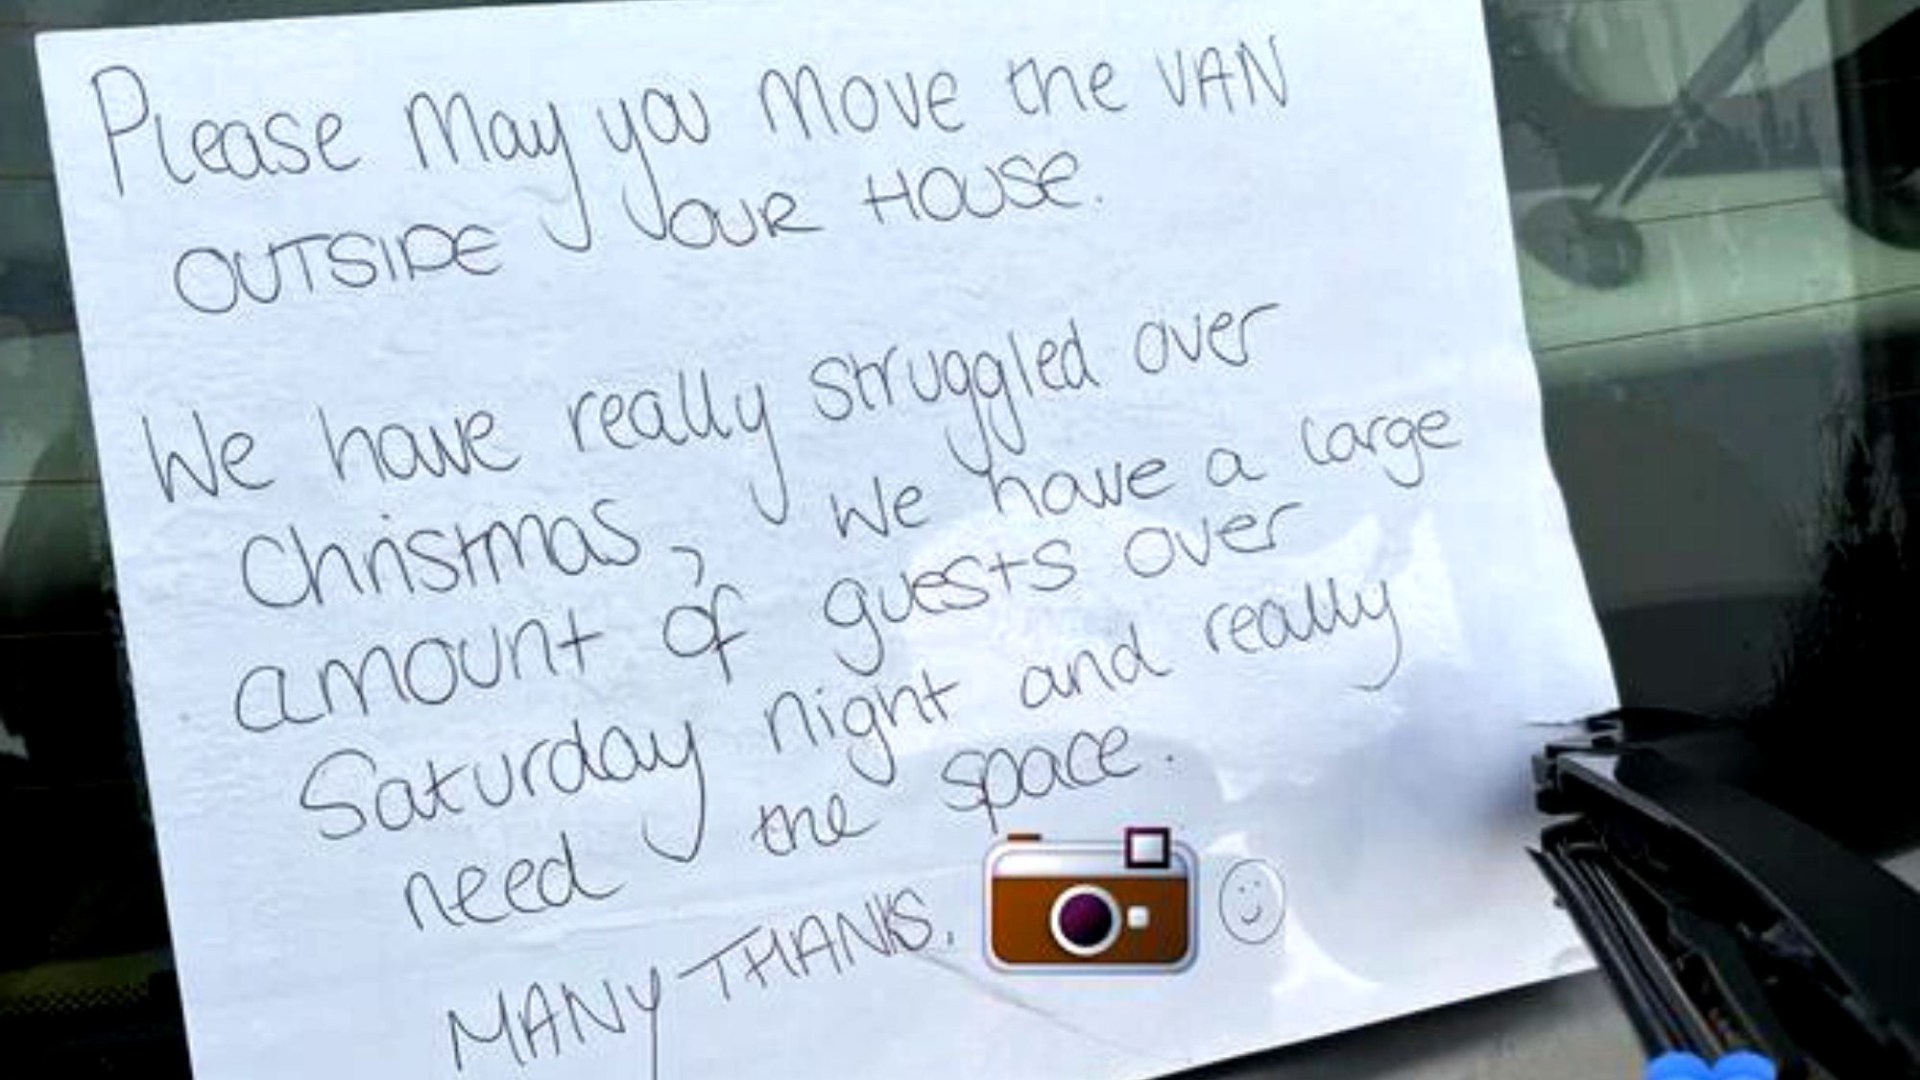 Please May you Move the VAN
OUTSIDE OUR HOUSE.
We have really struggled over
Christmas, We have a large
amount of guests over
Saturday night and really
need the space.
MANY THANKS.